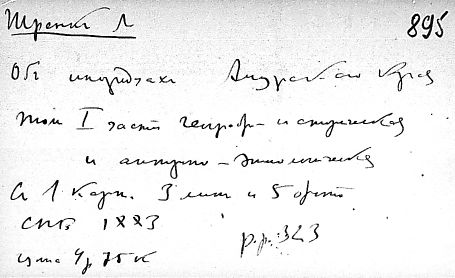 Шренк Л
895
Об инородцах Амурского края
том I часть географ-историческая
и антропо-этнологическая
С 1 карт. 3 лит и 5 фото
СПб 1883
цена 4 р 75 к
р.р. 323